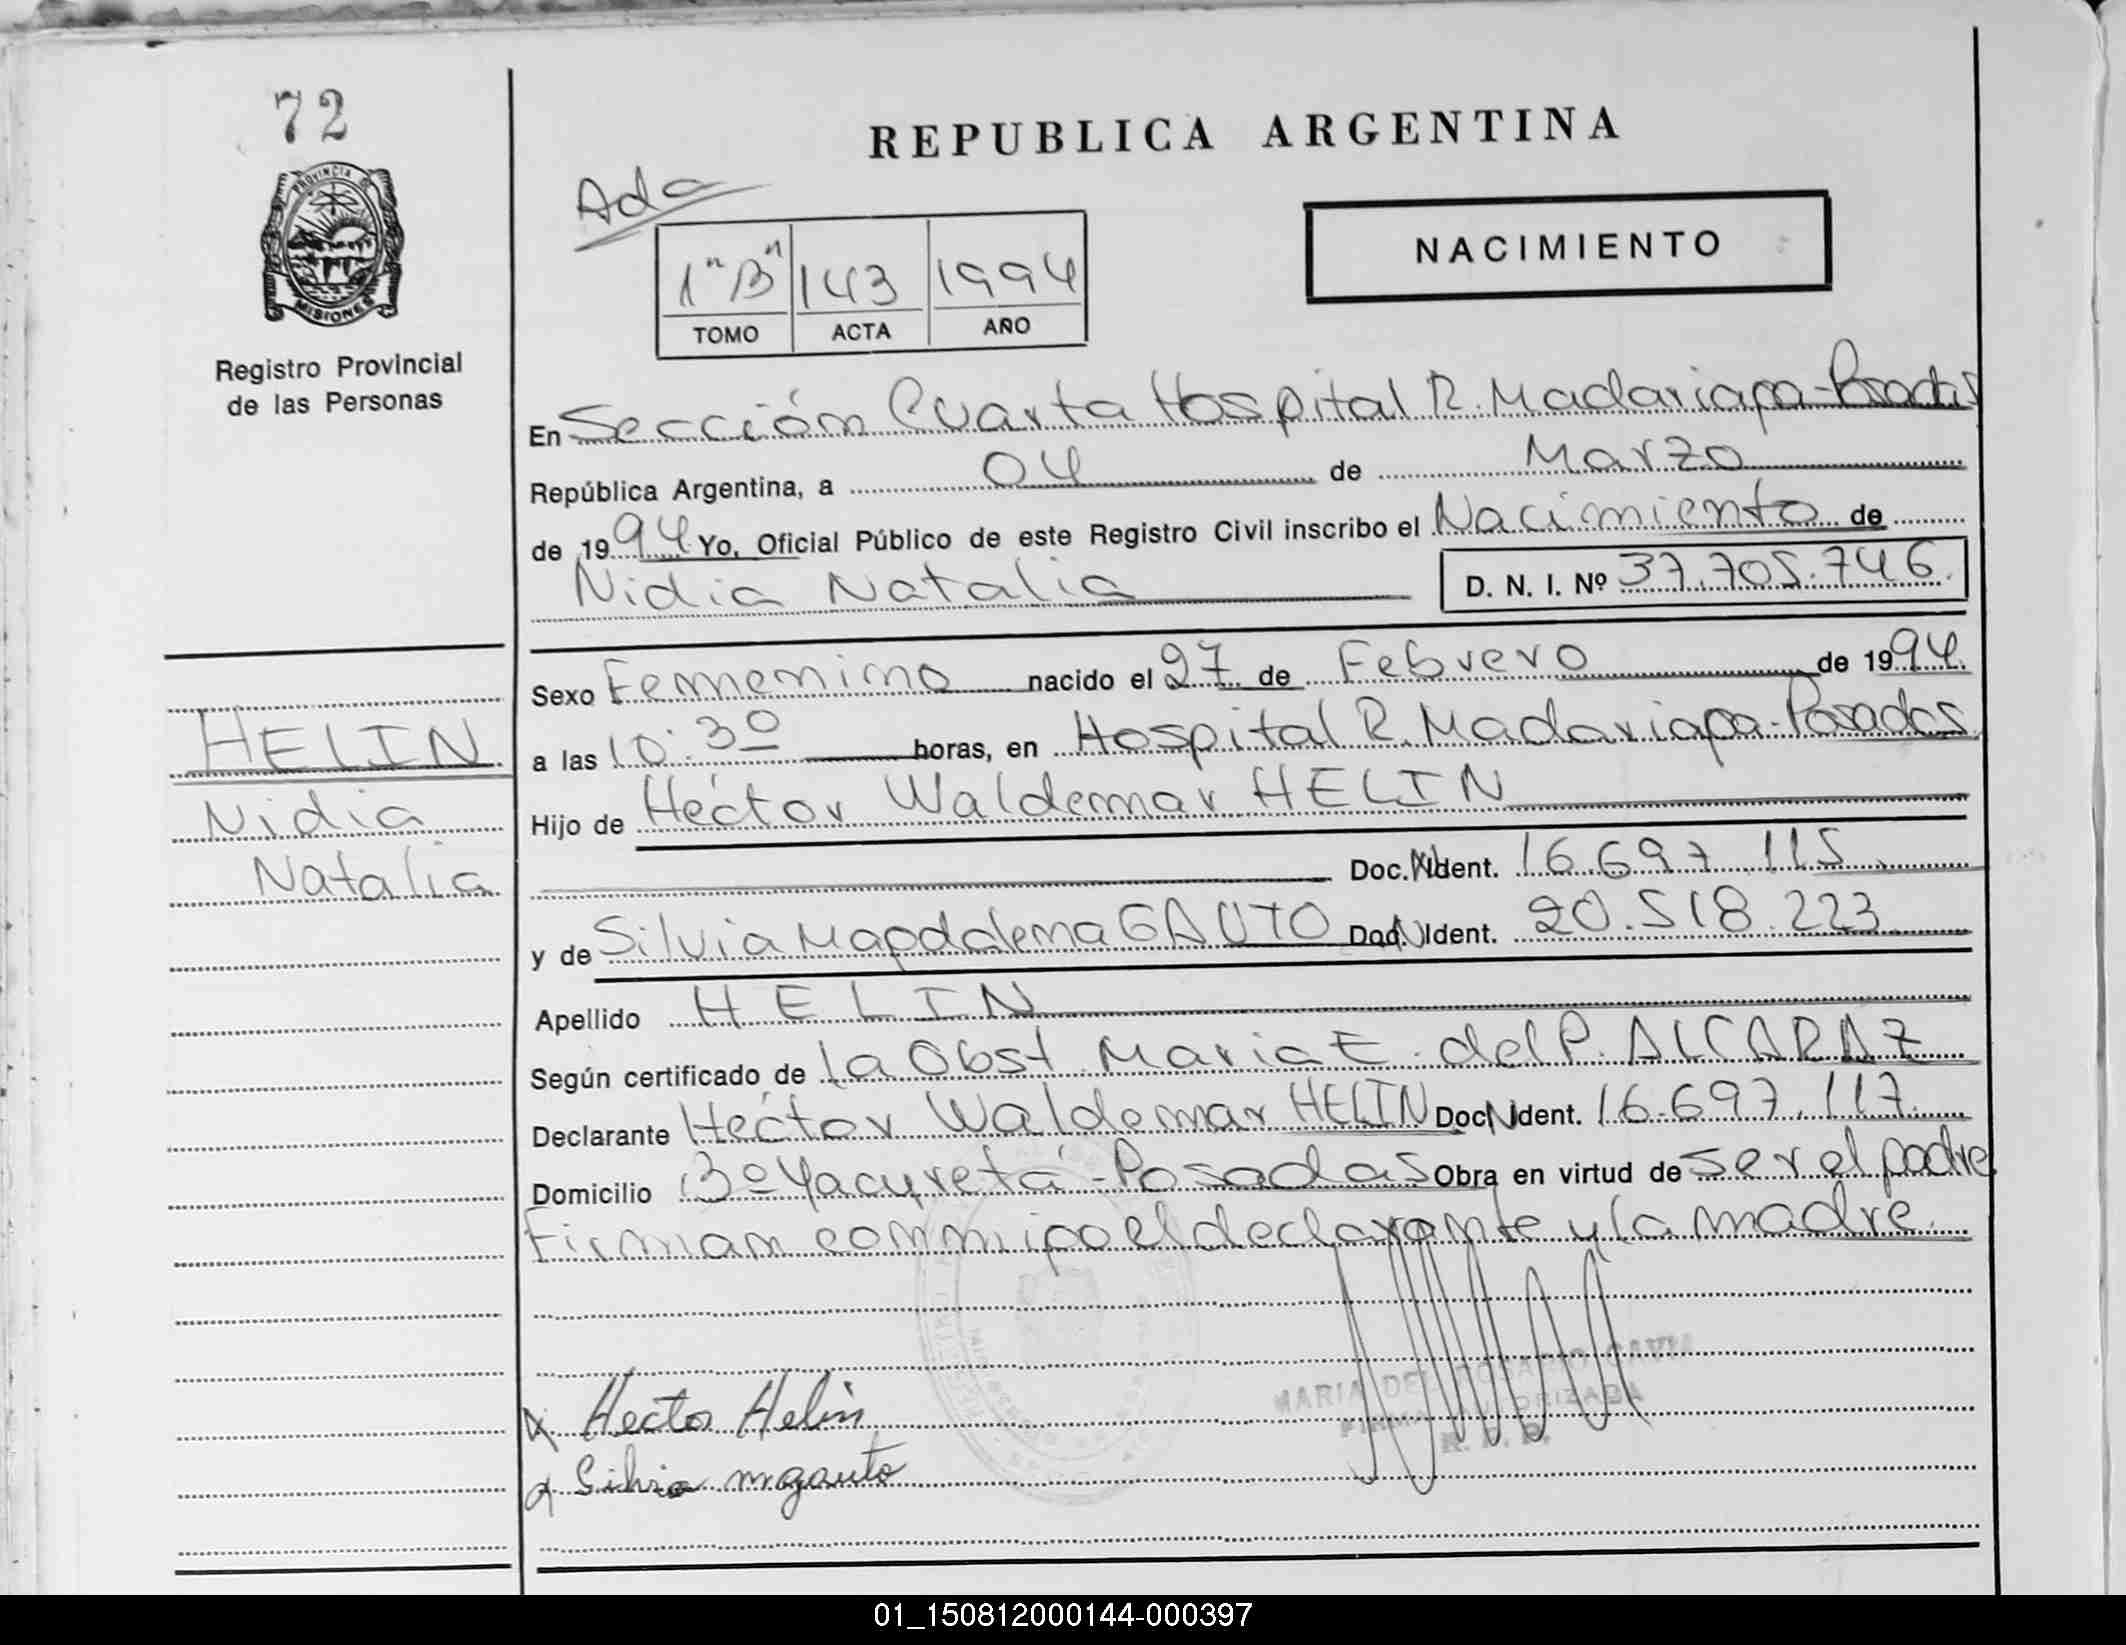 72
PROVINCIA DE
MISIONES
Registro Provincial
de las Personas
REPUBLICA ARGENTINA
Ada
NACIMIENTO
1"B" 143 1994
TOMO ACTA AÑO
En Sección Cuarta Hospital R. Madariaga-Posadas
República Argentina, a 04 de Marzo
de 1994 Yo, Oficial Público de este Registro Civil inscribo el Nacimiento de
Nidia Natalia D. N. I. Nº 37.705.746.
Sexo Femenino nacido el 27 de Febrero de 1994.
a las 10:30 horas, en Hospital R. Madariaga-Posadas
Hijo de Héctor Waldemar HELIN
Doc. N Ident. 16.697.115
y de Silvia Magdalena GAUTO Doc. N Ident. 20.518.223
Apellido HELIN
Según certificado de la Obst. Maria E. del P. ALCARAZ
Declarante Héctor Waldemar HELIN Doc N Ident. 16.697.117
Domicilio Bº Yacyretá-Posadas Obra en virtud de ser el padre
Firman conmigo el declarante y la madre.
HELIN
Nidia
Natalia
MARIA DEL ROSARIO
FIRMA AUTORIZADA
Hector Helin
Silvia m gauto
01_150812000144-000397